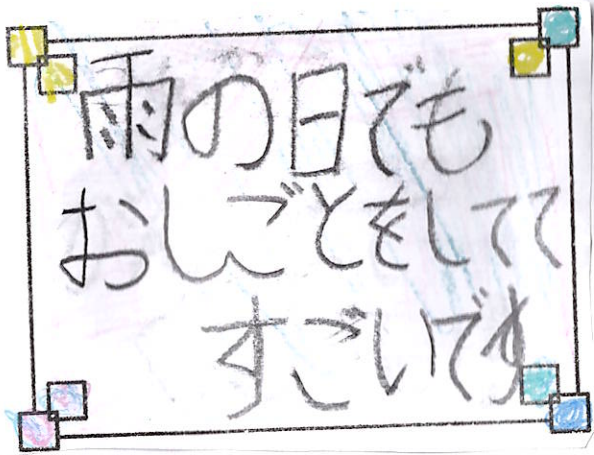 雨の日でも
おしごとをしてて
すごいです